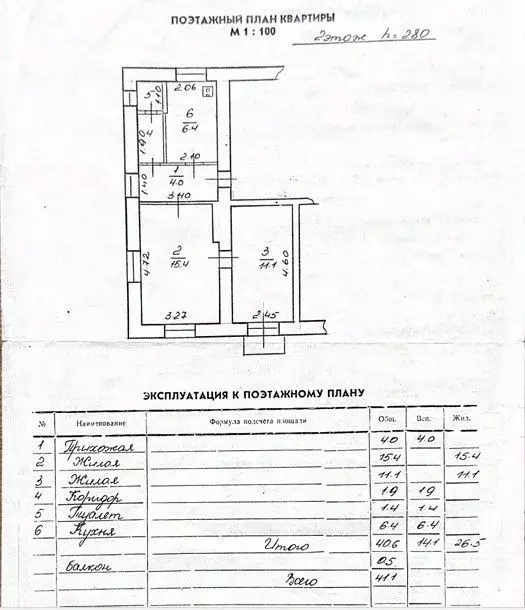 ПОЭТАЖНЫЙ ПЛАН КВАРТИРЫ
М 1 : 100
2 этаж h=280
2.06
5
1.10
6
6.4
4
1.90
2.10
1
4.0
1.40
3.40
2
15.4
4.72
3
11.1
4.60
3.27
2.45
ЭКСПЛУАТАЦИЯ К ПОЭТАЖНОМУ ПЛАНУ
№ Наименование Формула подсчёта площади Общ. Всп. Жил.
1 Прихожая 4.0 4.0
2 Жилая 15.4 15.4
3 Жилая 11.1 11.1
4 Коридор 1.9 1.9
5 Туалет 1.4 1.4
6 Кухня 6.4 6.4
Итого 40.6 14.1 26.5
балкон 0.5
Всего 41.1